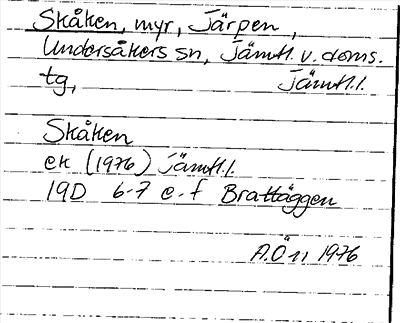 Skåken, myr, Järpen,
Undersåkers sn, Jämtl. v. doms.
tg, Jämtl. l.
Skåken
ek (1976) Jämtl. l.
19D 6-7 e-f Brattäggen
A.Ö 1976